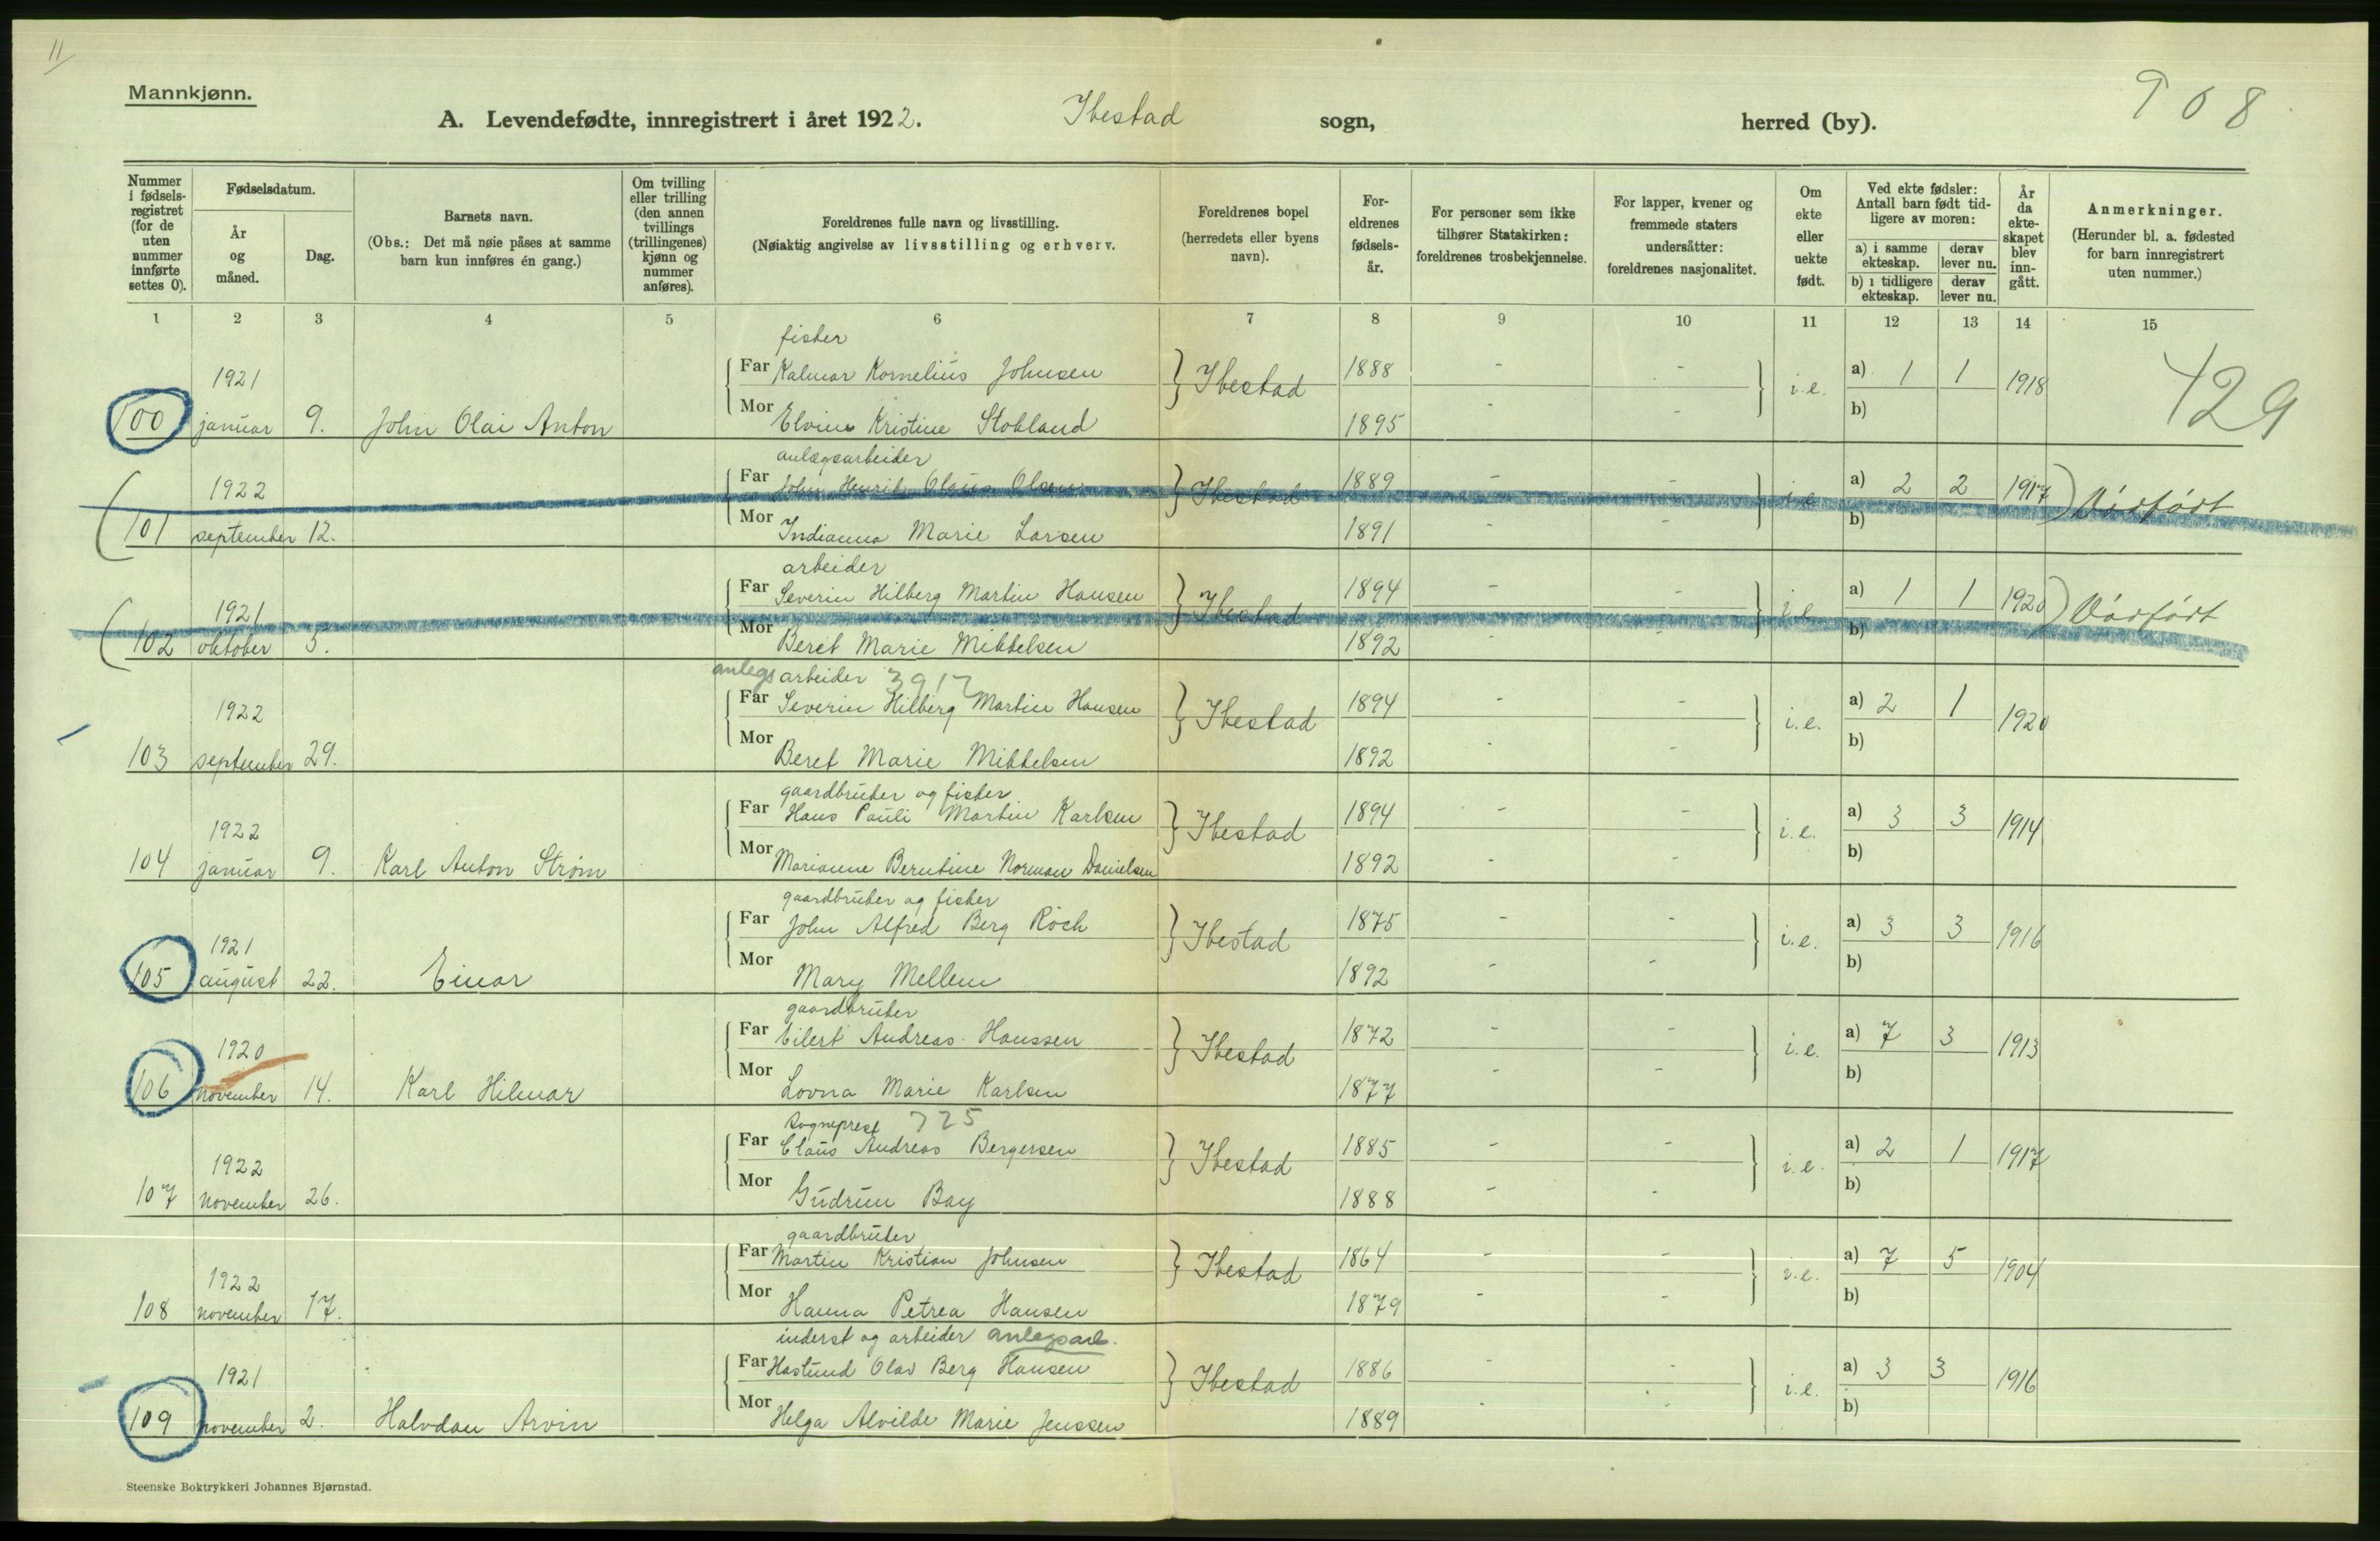 11
Mannkjønn.
A. Levendefødte, innregistrert i året 1922. Ibestad sogn, herred (by).
908
Nummer i fødsels-registret (for de uten nummer innførte settes 0).
Fødselsdatum.
År og måned.
Dag.
Barnets navn.
(Obs.: Det må nøie påses at samme barn kun innføres én gang.)
Om tvilling eller trilling (den annen tvillings (trillingenes) kjønn og nummer anføres).
Foreldrenes fulle navn og livsstilling.
(Nøiaktig angivelse av livsstilling og erhverv.
Foreldrenes bopel (herredets eller byens navn).
For-eldrenes fødsels-år.
For personer som ikke tilhører Statskirken: foreldrenes trosbekjennelse.
For lapper, kvener og fremmede staters undersåtter: foreldrenes nasjonalitet.
Om ekte eller uekte født.
Ved ekte fødsler: Antall barn født tid-ligere av moren:
a) i samme ekteskap.
derav lever nu.
b) i tidligere ekteskap.
derav lever nu.
År da ekte-skapet blev inn-gått.
Anmerkninger.
(Herunder bl. a. fødested for barn innregistrert uten nummer.)
1 2 3 4 5 6 7 8 9 10 11 12 13 14 15
429
fisker
1921 Far Kalmar Kornelius Johnsen } Ibestad 1888 - - } i.e. a) 1 1 1918
100 januar 9. John Olai Anton Mor Elvine Kristine Stokland 1895 - - b)
anlægsarbeider
1922 Far John Henrik Olaus Olsen } Ibestad 1889 - - } i.e. a) 2 2 1917 ) Dødfødt
( 101 september 12. Mor Indianna Marie Larsen 1891 - - b)
arbeider
1921 Far Severin Hilberg Martin Hansen } Ibestad 1894 - - } i.e. a) 1 1 1920 ) Dødfødt
( 102 oktober 5. Mor Beret Marie Mikkelsen 1892 - - b)
anlegsarbeider 3917
1922 Far Severin Hilberg Martin Hansen } Ibestad 1894 - - } i.e. a) 2 1 1920
103 september 29. Mor Beret Marie Mikkelsen 1892 - - b)
gaardbruker og fisker
1922 Far Hans Pauli Martin Karlsen } Ibestad 1894 - - } i.e. a) 3 3 1914
104 januar 9. Karl Anton Strøm Mor Marianne Berntine Norman Danielsen 1892 - - b)
gaardbruker og fisker
1921 Far John Alfred Berg Röch } Ibestad 1875 - - } i.e. a) 3 3 1916
105 august 22. Einar Mor Mary Mellem 1892 - - b)
gaardbruker
1920 Far Eilert Andreas Hanssen } Ibestad 1872 - - } i.e. a) 7 3 1913
106 november 14. Karl Hilmar Mor Lovna Marie Karlsen 1877 - - b)
Sogneprest 725
1922 Far Claus Andreas Bergersen } Ibestad 1885 - - } i.e. a) 2 1 1917
107 november 26. Mor Gudrun Bay 1888 - - b)
gaardbruker
1922 Far Martin Kristian Johnsen } Ibestad 1864 - - } i.e. a) 7 5 1904
108 november 17. Mor Hanna Petrea Hansen 1879 - - b)
inderst og arbeider anlegsarb.
1921 Far Hastund Olav Berg Hansen } Ibestad 1886 - - } i.e. a) 3 3 1916
109 november 2. Halvdan Arvin Mor Helga Alvilde Marie Jenssen 1889 - - b)
Steenske Boktrykkeri Johannes Bjørnstad.